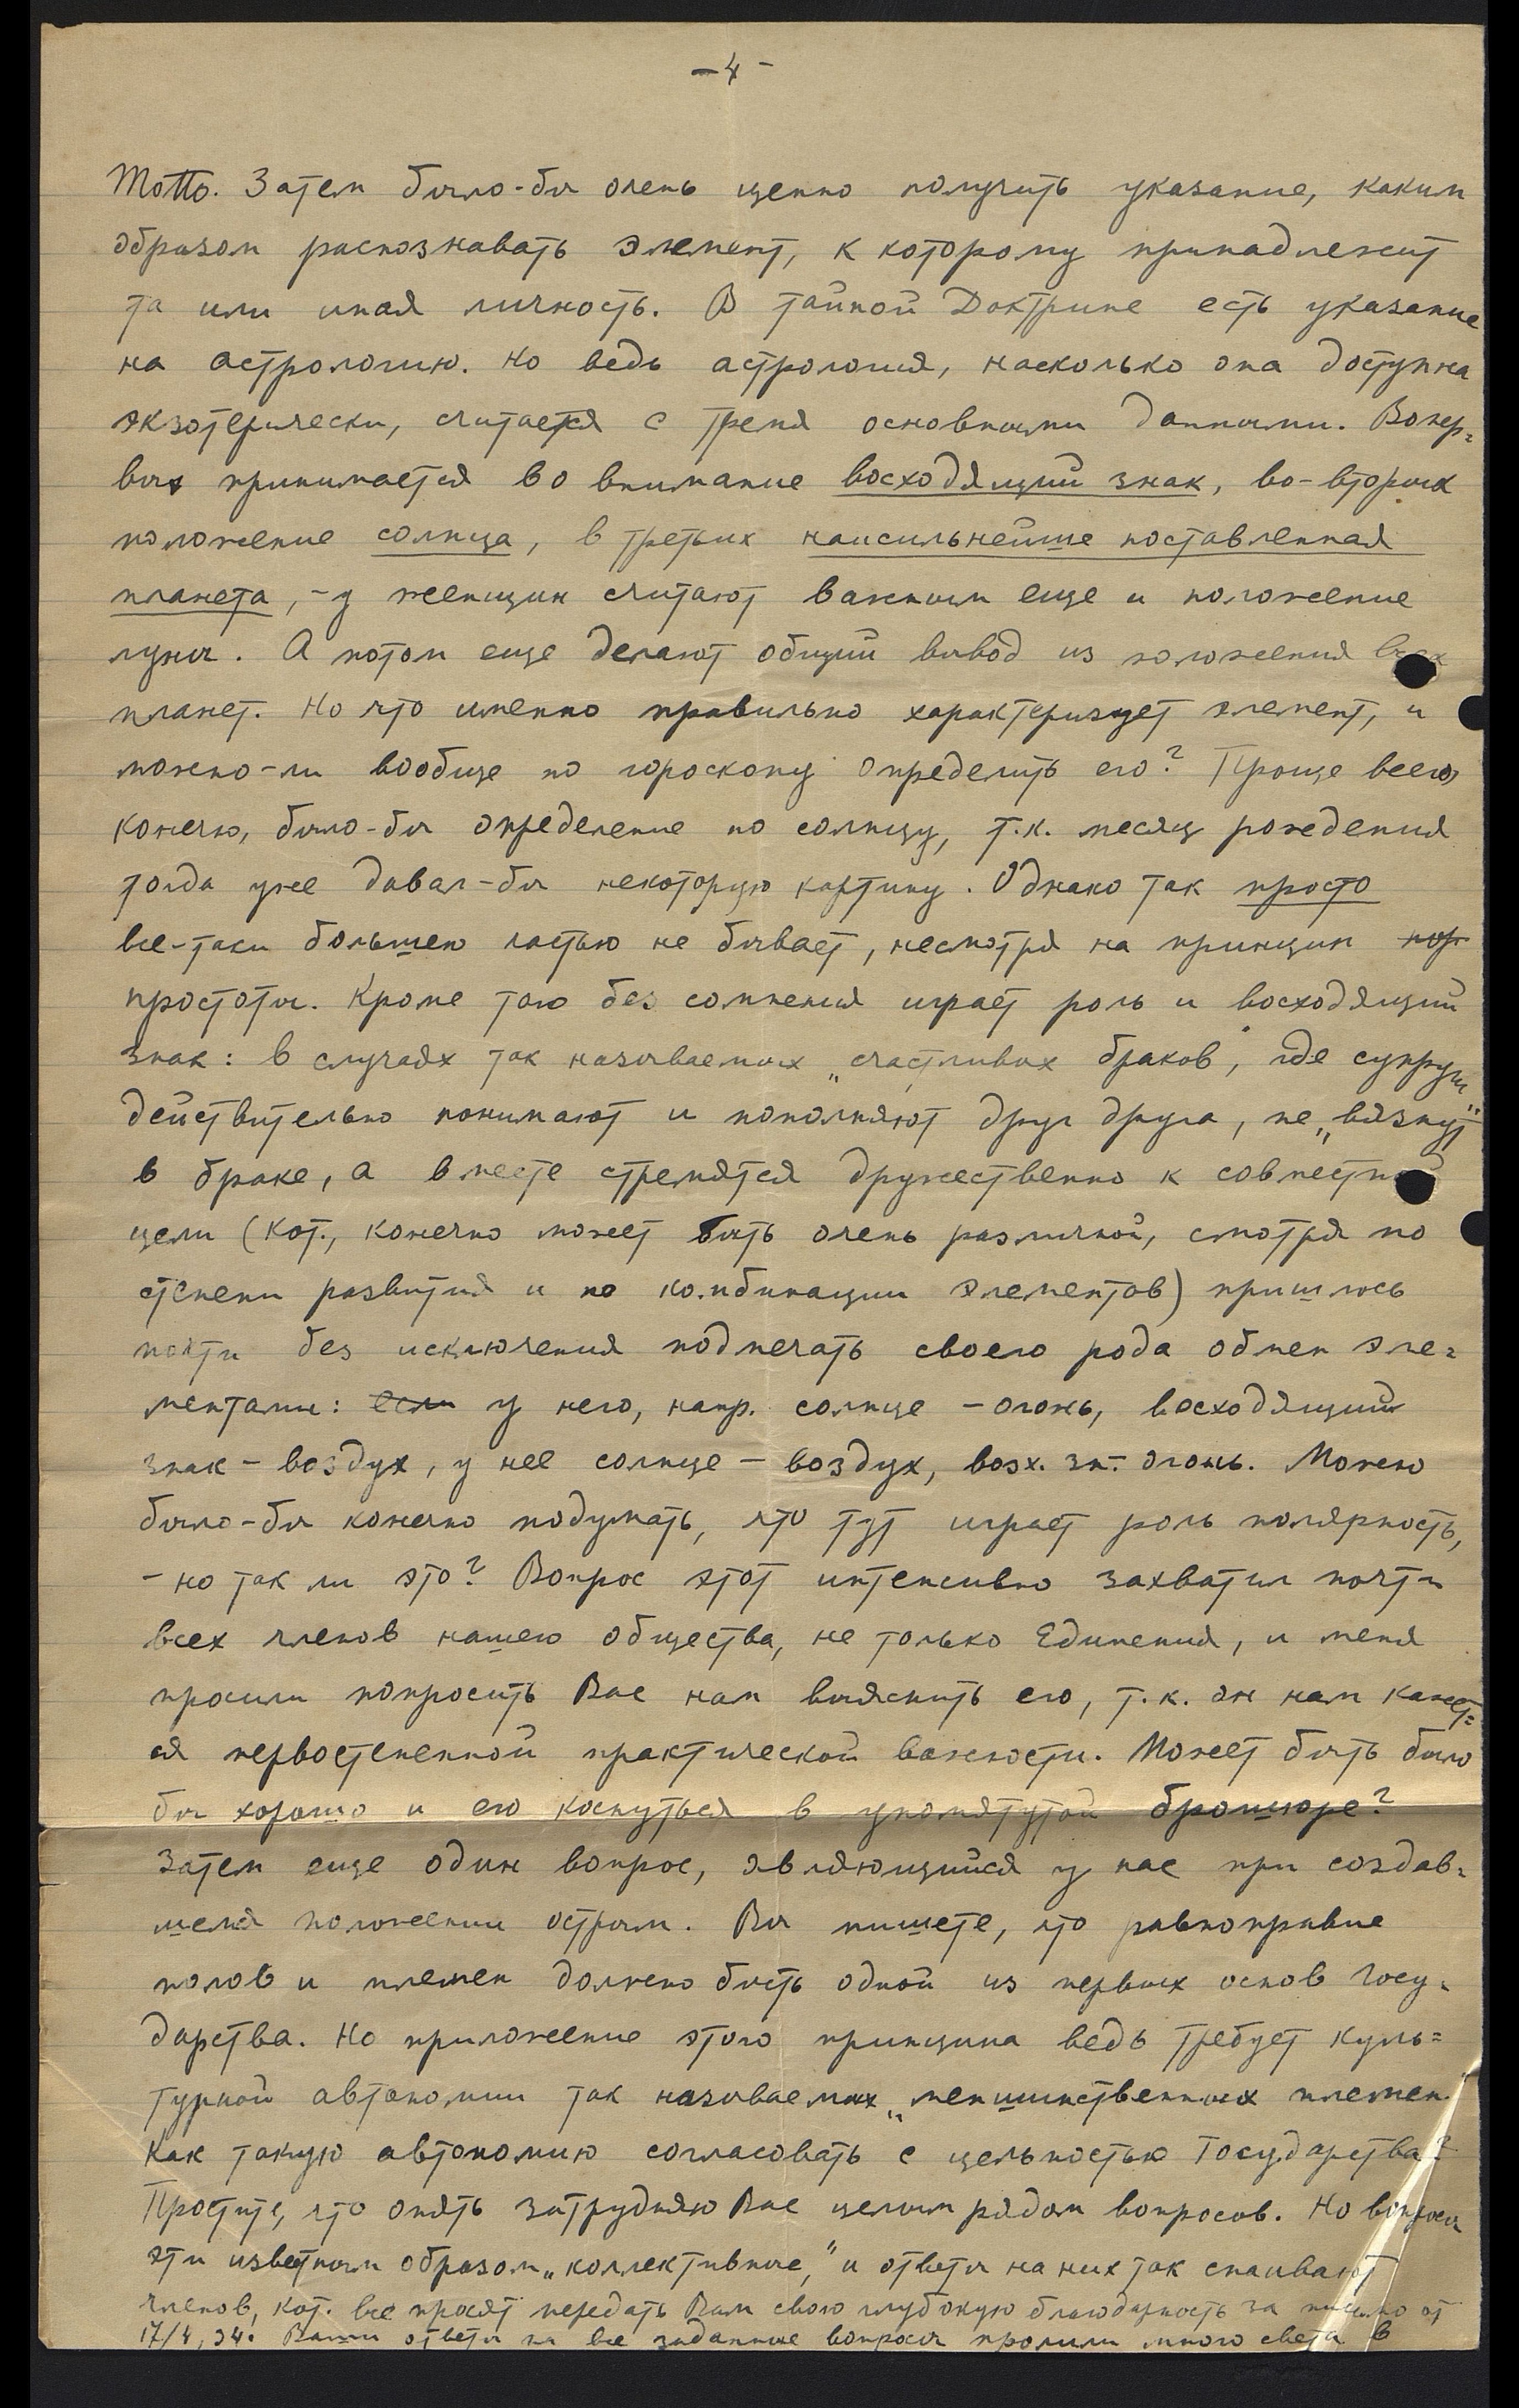 -4-
Motto. Затем было-бы очень ценно получить указание, каким
образом распознавать элемент, к которому принадлежит
та или иная личность. В тайной Доктрине есть указание
на астрологию. Но ведь астрология, насколько она доступна
экзотерически, считается с тремя основными данными. Вопер=
вых принимается во внимание восходящий знак, во-вторых
положение солнца, в третьих наисильнейше поставленная
планета, - у женщин считают важным еще и положение
луны. А потом еще делают общий вывод из положения всех
планет. Но что именно правильно характеризует элемент, и
можно-ли вообще по гороскопу определить его? Проще всего,
конечно, было-бы определение по солнцу, т.к. месяц рождения
тогда уже давал-бы некоторую картину. Однако так просто
все-таки большею частью не бывает, несмотря на принцип пор
простоты. Кроме того без сомнения играет роль и восходящий
знак: в случаях так называемых „счастливых браков", где супруги
действительно понимают и пополняют друг друга, не „вязнут"
в браке, а вместе стремятся дружественно к совместной
цели (кот., конечно может быть очень различной, смотря по
степени развития и по комбинации элементов) пришлось
почти без исключения подмечать своего рода обмен эле=
ментами: если у него, напр. солнце - огонь, восходящий
знак - воздух, у нее солнце - воздух, восх. зн.- огонь. Можно
было-бы конечно подумать, что тут играет роль полярность,
- но так ли это? Вопрос этот интенсивно захватил почти
всех членов нашего общества, не только Единения, и меня
просили попросить Вас нам выяснить его, т.к. он нам кажет=
ся первостепенной практической важности. Может быть было
бы хорошо и его коснуться в упомятутой брошюре?
Затем еще один вопрос, являющийся у нас при создав=
шемся положении острым. Вы пишете, что равноправие
полов и племен должно быть одной из первых основ Госу=
дарства. Но приложение этого принципа ведь требует куль=
турной автономии так называемых „меньшинственных племен.
Как такую автономию согласовать с цельностью Государства?
Простите, что опять затрудняю Вас целым рядом вопросов. Но вопросы
эти известным образом „коллективные," и ответы на них так спаивают
членов, кот. все просят передать Вам свою глубокую благодарность за письмо от
17/4, 34. Ваши ответы на все заданные вопросы пролили много света в